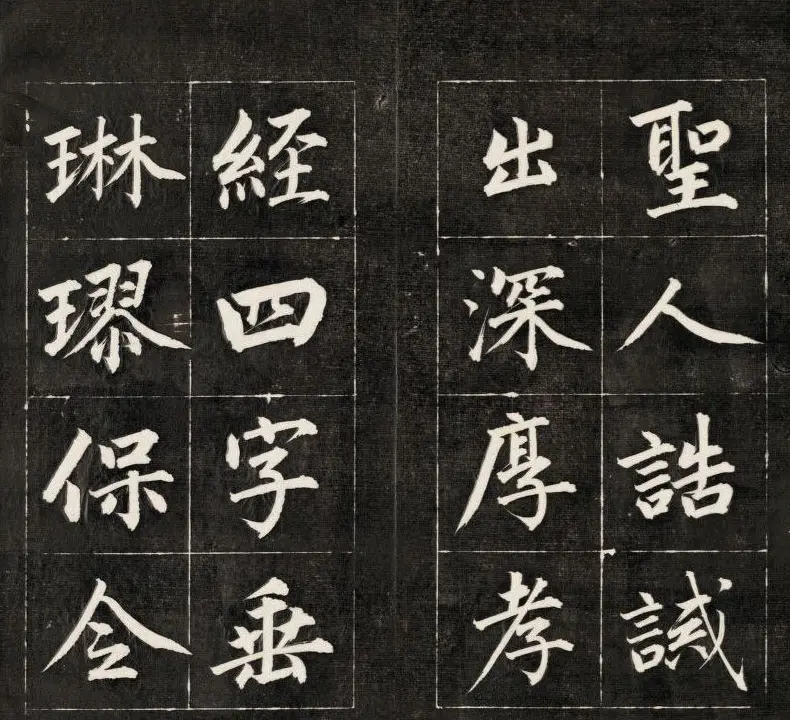 聖人誥誡
出深厚孝
経四字垂
琳璆保令